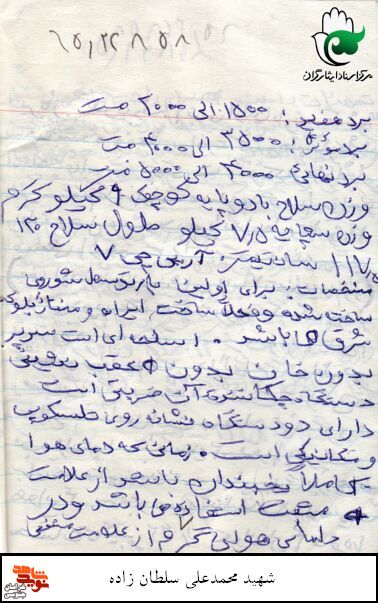 مرکز اسناد ایثارگران
برد مفید: ۱۵۰۰ الی ۲۰۰۰ متر
برد مؤثر: ۳۵۰۰ الی ۴۰۰۰ متر
برد نهائی ۴۰۰۰ الی ۵۰۰۰ متر
وزن سلاح با دو پایه کوچک ۹ کیلوگرم
وزن سه پایه ۷/۵ کیلو طول سلاح ۱۲۰
۱۱۷/۵ سانتیمتر. آر پی جی ۷
مشخصات: برای اولین بار توسط شوروی
ساخته شده و فعلا ساخت ایران و بلوک
شرق میباشد. اسلحه ای است سرپر
بدون خان بدون عقب نشینی
دستگاه چکاننده آن ضربتی است
دارای دو دستگاه نشانه روی تلسکوپی
و مکانیکی است. زمانی که دمای هوا
کاملا یخبندان باشد از علامت
مثبت استفاده میباشد و در
دمای هوای گرم از علامت منفی
شهید محمدعلی سلطان زاده